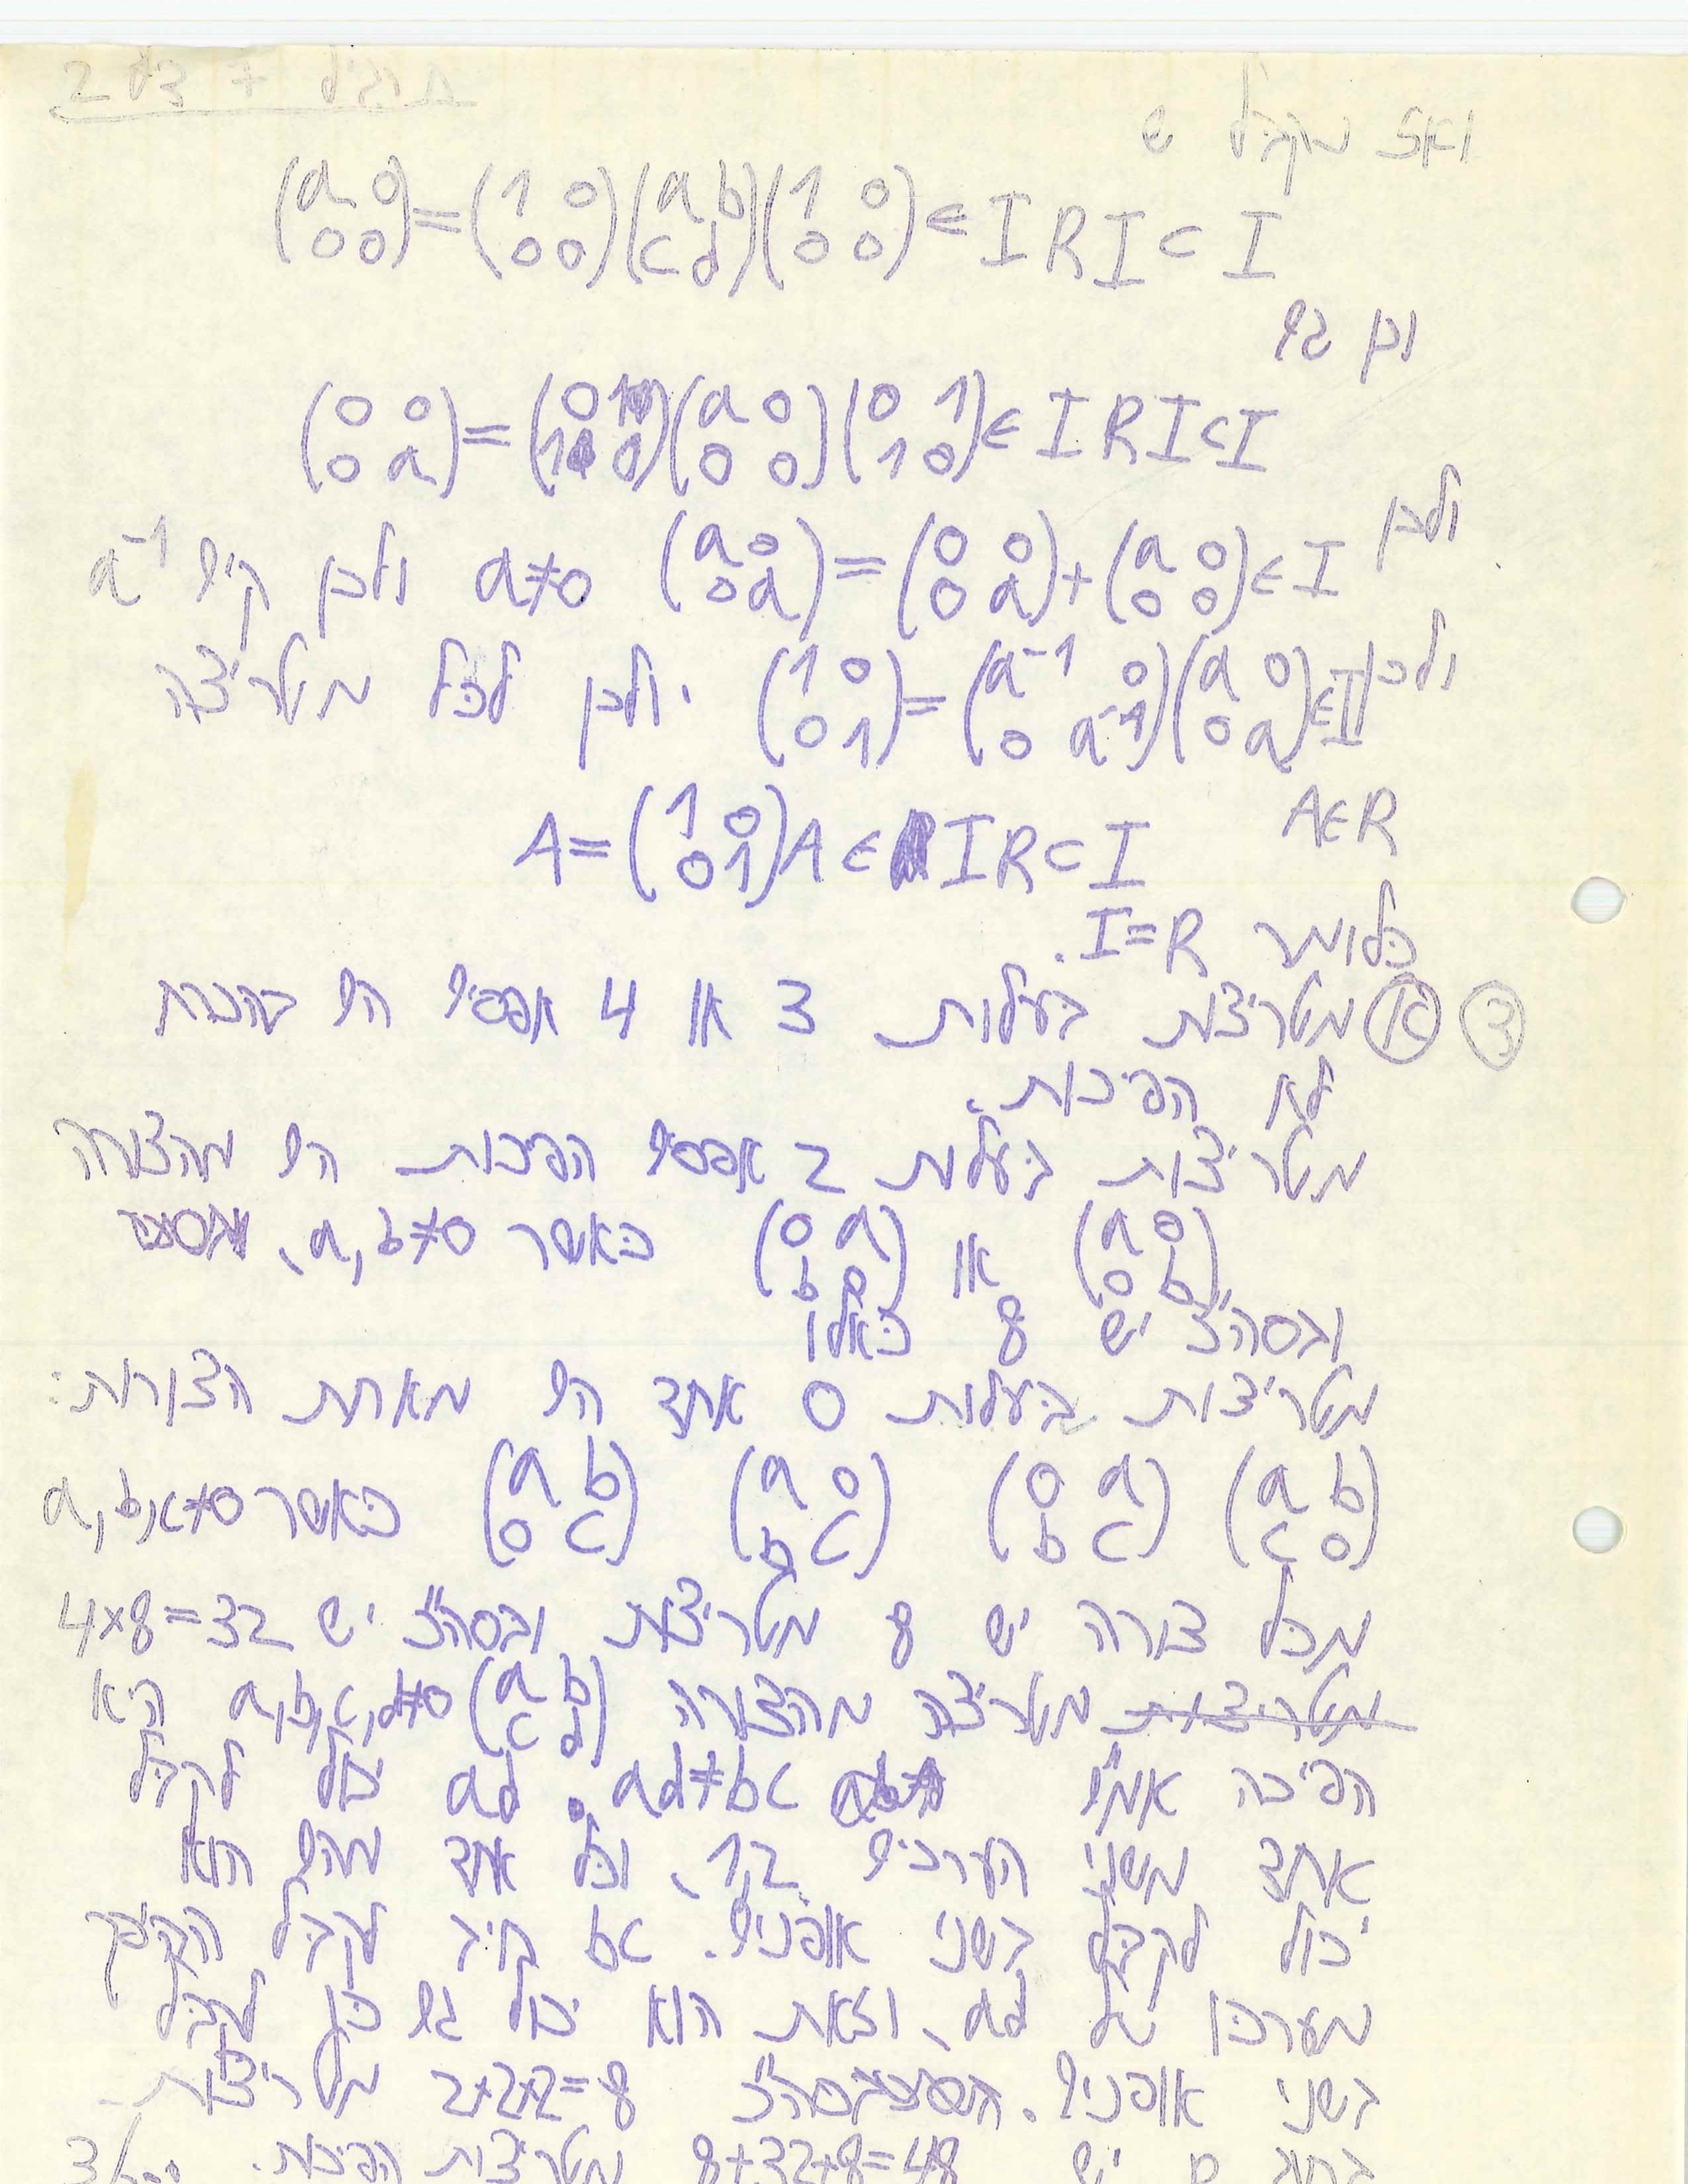 תרגיל 7 דף 2
ואז נקבל ש
(a 0; 0 0) = (1 0; 0 0)(a b; c d)(1 0; 0 0) ∈ IRI ⊂ I
וכן גם
(0 0; 0 a) = (0 1; 1 0)(a 0; 0 0)(0 1; 1 0) ∈ IRI ⊂ I
ולכן (a 0; 0 a) = (0 0; 0 a) + (a 0; 0 0) ∈ I a≠0 ולכן קיים a⁻¹
ולכן (1 0; 0 1) = (a⁻¹ 0; 0 a⁻¹)(a 0; 0 a) ∈ I. ולכן לכל מטריצה
A∈R A = (1 0; 0 1)A ∈ IR ⊂ I
כלומר I=R.
③ א מטריצות בעלות 3 או 4 אפסים הם בהכרח
לא הפיכות.
מטריצות בעלות 2 אפסים הפיכות הם מהצורה
(a 0; 0 b) או (0 a; b 0) כאשר a,b≠0,
ובסה"כ יש 8 כאלו
מטריצות בעלות 0 אחד הם מאחת הצורות:
(a b; c 0) (0 a; b c) (a 0; b c) (a b; 0 c) כאשר a,b,c≠0
מכל צורה יש 8 מטריצות ובסה"כ יש 4×8=32
מטריצות מטריצה מהצורה (a b; c d) a,b,c,d≠0 היא
הפיכה אמ"מ ad≠bc. ad יכול לקבל
אחד משני הערכים 1,2, וכל אחד מהם הוא
יכול לקבל בשני אופנים. bc חייב לקבל ההיפך
מערכו של ad, וזאת הוא יכול גם כן לקבל
בשני אופנים. בסה"כ 2×2×2=8 מטריצות.
יש 8+32+8=48 מטריצות הפיכות.